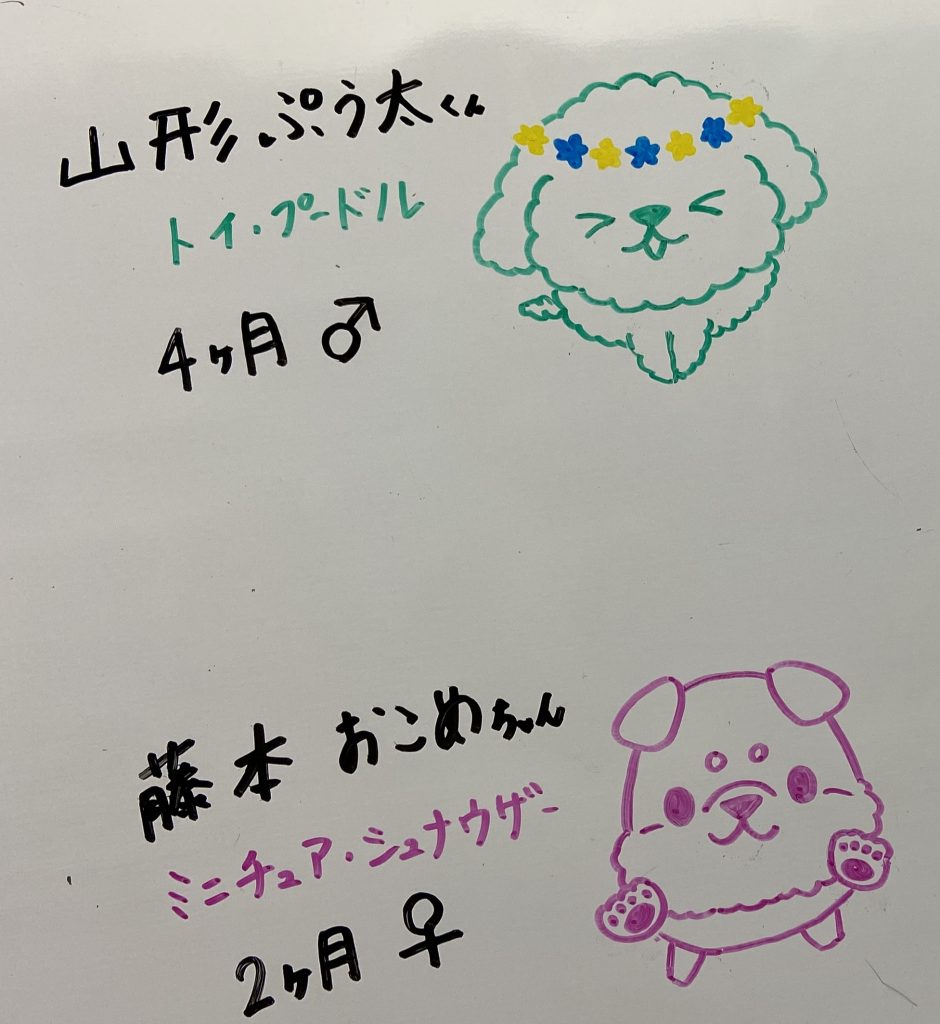 山形 ぷう太くん
トイ・プードル
4ヶ月 ♂
藤本 おこめちゃん
ミニチュア・シュナウザー
2ヶ月 ♀